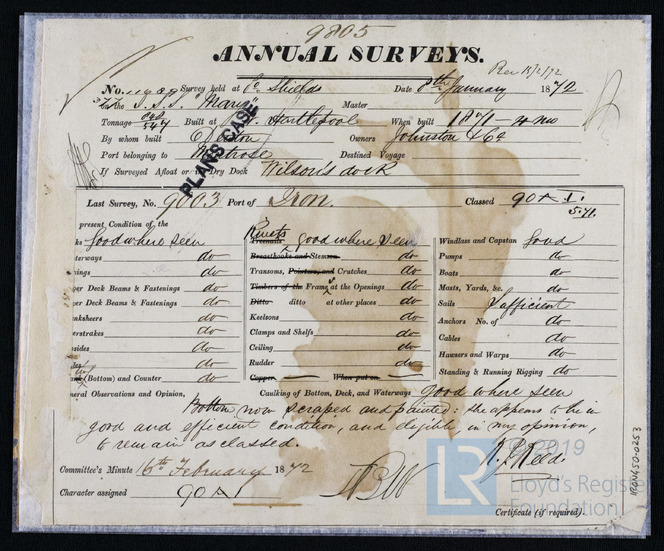 9805
ANNUAL SURVEYS.
Rec 15/2/72
No. Survey held at So. Shields Date 8th January 1872
on the S.S.S. "Mary" Master
Tonnage 547 Built at Hartlepool When built 1871 - 4 mo
By whom built Denton Owners Johnston & Co
Port belonging to Melrose Destined Voyage
If Surveyed Afloat or in Dry Dock Wilson's dock
PLANS CASE
Last Survey, No. 9003 Port of Iron. Classed 90 A I.
5.71.
present Condition of the
good where seen
Rivets good where seen
Windlass and Capstan Good
terways do
Breasthooks and Stemson do
Pumps do
nings do
Transoms, Pointers, and Crutches do
Boats do
per Deck Beams & Fastenings do
Timbers of the Frame at the Openings do
Masts, Yards, &c. do
per Deck Beams & Fastenings do
Ditto ditto at other places do
Sails Sufficient
nksheers do
Keelsons do
Anchors No. of do
erstrakes do
Clamps and Shelfs do
Cables do
sides do
Ceiling do
Hawsers and Warps do
do
Rudder do
Standing & Running Rigging do
(Bottom) and Counter do
Copper When put on do
neral Observations and Opinion,
Caulking of Bottom, Deck, and Waterways good where seen
Bottom now scraped and painted: she appears to be in
good and efficient condition, and eligible in my opinion,
to remain as classed.
Committee's Minute 16th February 1872
Character assigned 90 A 1
Certificate (if required).
HECROS450-0253
LR
© 2019
Lloyd's Register
Foundation